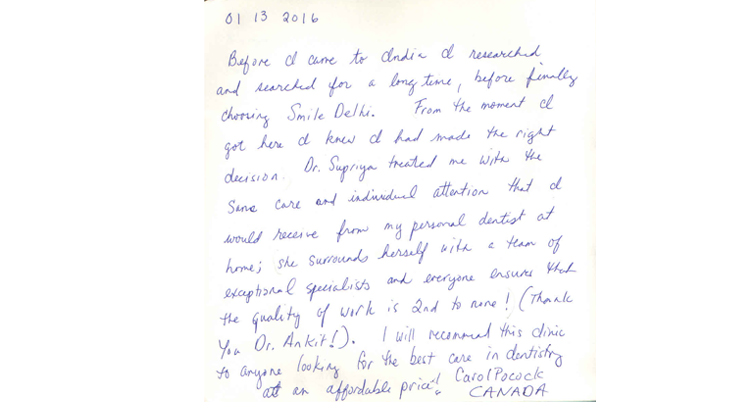 01 13 2016
Before I came to India I researched
and searched for a long time, before finally
choosing Smile Delhi. From the moment I
got here I knew I had made the right
decision. Dr. Supriya treated me with the
same care and individual attention that I
would receive from my personal dentist at
home; she surrounds herself with a team of
exceptional specialists and everyone ensures that
the quality of work is 2nd to none! (Thank
You Dr. Ankit!). I will recommend this clinic
to anyone looking for the best care in dentistry
at an affordable price! Carol Pocock
CANADA